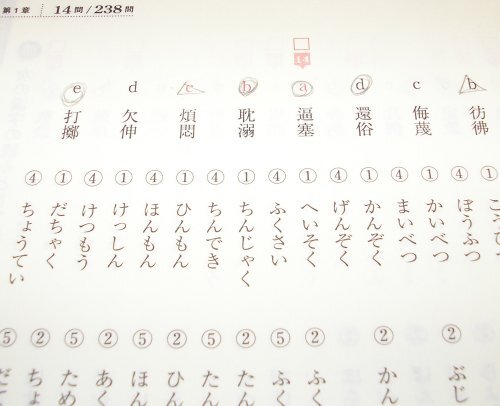 第1章 14問/238問
14
b 彷彿
①
④ ぼうふつ
② ぶじ
c 侮蔑
① かいべつ
④ まいべつ
d 還俗
① かんぞく
② かん
④ げんぞく
a 逼塞
① へいそく
② ふく
④ ふくさい
⑤ ふく
b 耽溺
① ちんじゃく
② たん
④ ちんでき
⑤ たん
c 煩悶
① ひんもん
② ひん
④ ほんもん
⑤ ほん
d 欠伸
① けっしん
② あく
④ けつもう
⑤ ため
e 打擲
① だちゃく
② ちょ
④ ちょうてい
⑤